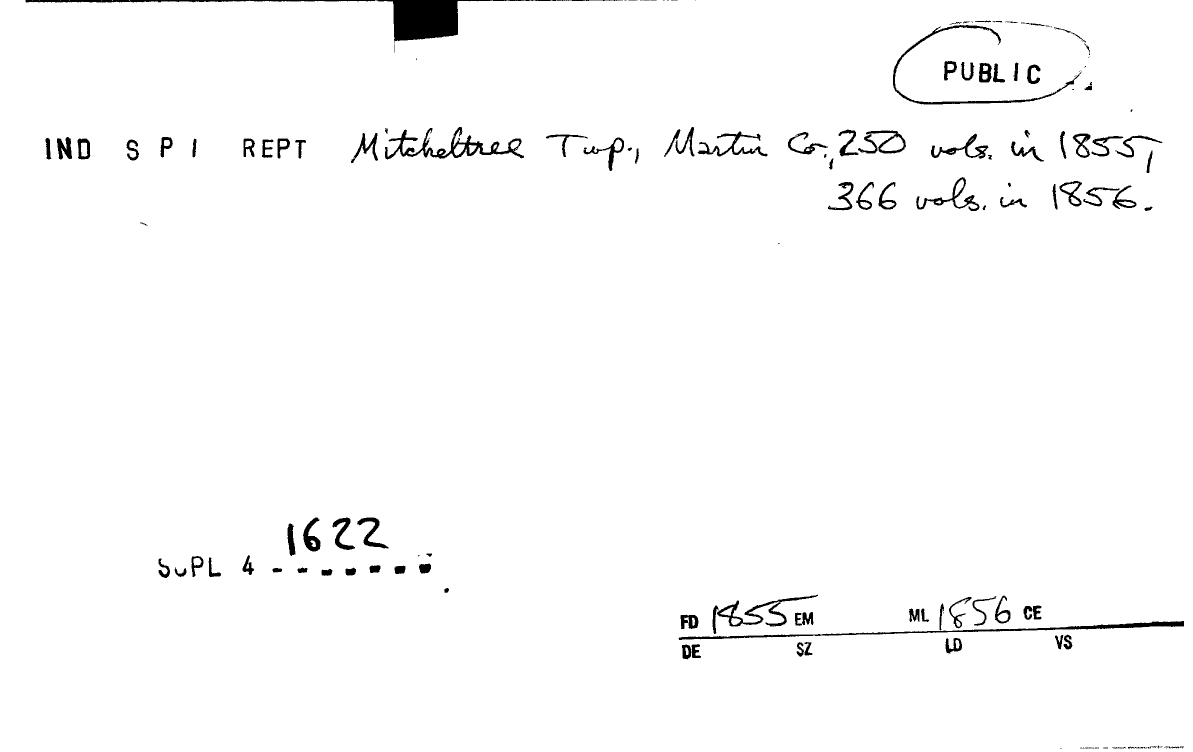 PUBLIC
IND S P I REPT Mitcheltree Twp., Martin Co., 250 vols. in 1855,
366 vols. in 1856.
1622
SUPL 4
FD 1855 EM ML 1856 CE
DE SZ LD VS